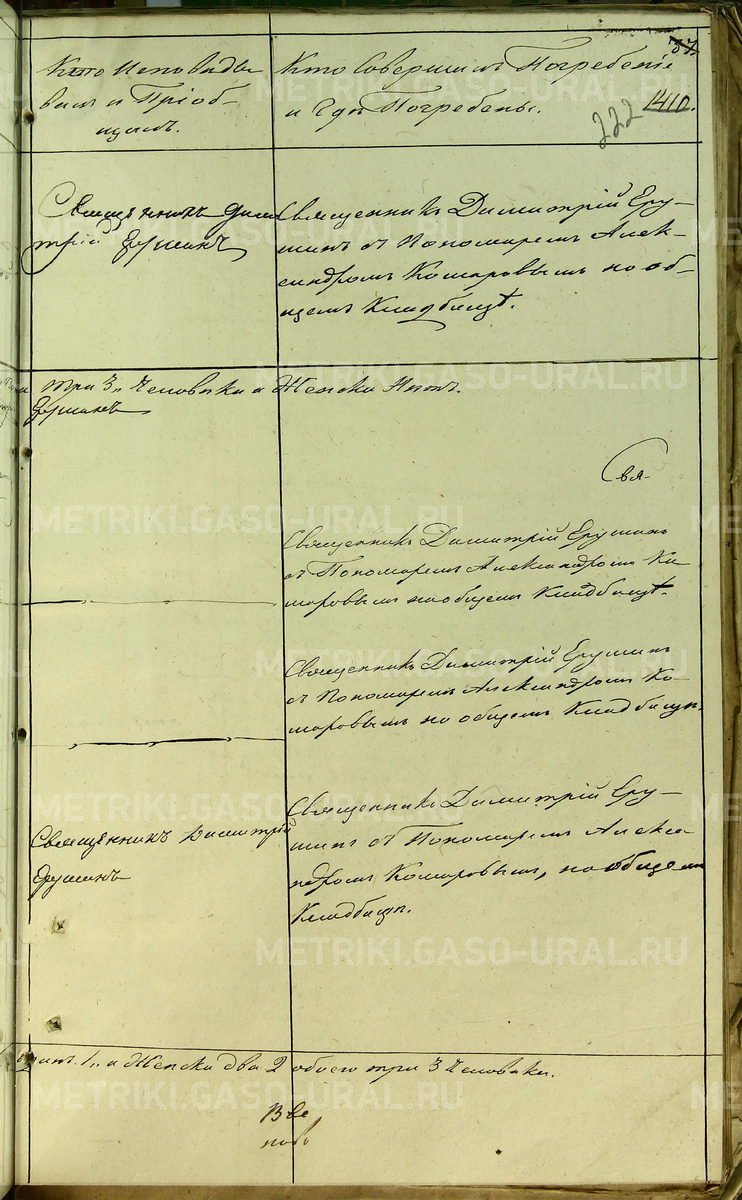 37.
1410.
222
Кто Исповѣды
валъ и Пріоб-
щалъ.
Кто Совершилъ Погребеніе
и гдѣ Погребены.
Священникъ Дими
трій Ерушинъ
Священникъ Димитрій Еру-
шинъ съ Пономаремъ Алек-
сандромъ Комаровымъ на об-
щемъ Кладбищѣ.
три 3,, Человѣка а Женска Нѣтъ.
Ерушинъ
Свя-
Священникъ Димитрій Ерушинъ
съ Пономаремъ Александромъ Ко
маровымъ на общемъ Кладбищѣ.
Священникъ Димитрій Ерушинъ
съ Пономаремъ Александромъ Ко-
маровымъ на общемъ Кладбищѣ.
Священникъ Димитрій
Ерушинъ
Священникъ Димитрій Еру-
шинъ съ Пономаремъ Алекса-
ндромъ Комаровымъ, на общемъ
Кладбищѣ.
1,, а Женска два 2 обоего три 3 Человѣка.
METRIKI.GASO-URAL.RU